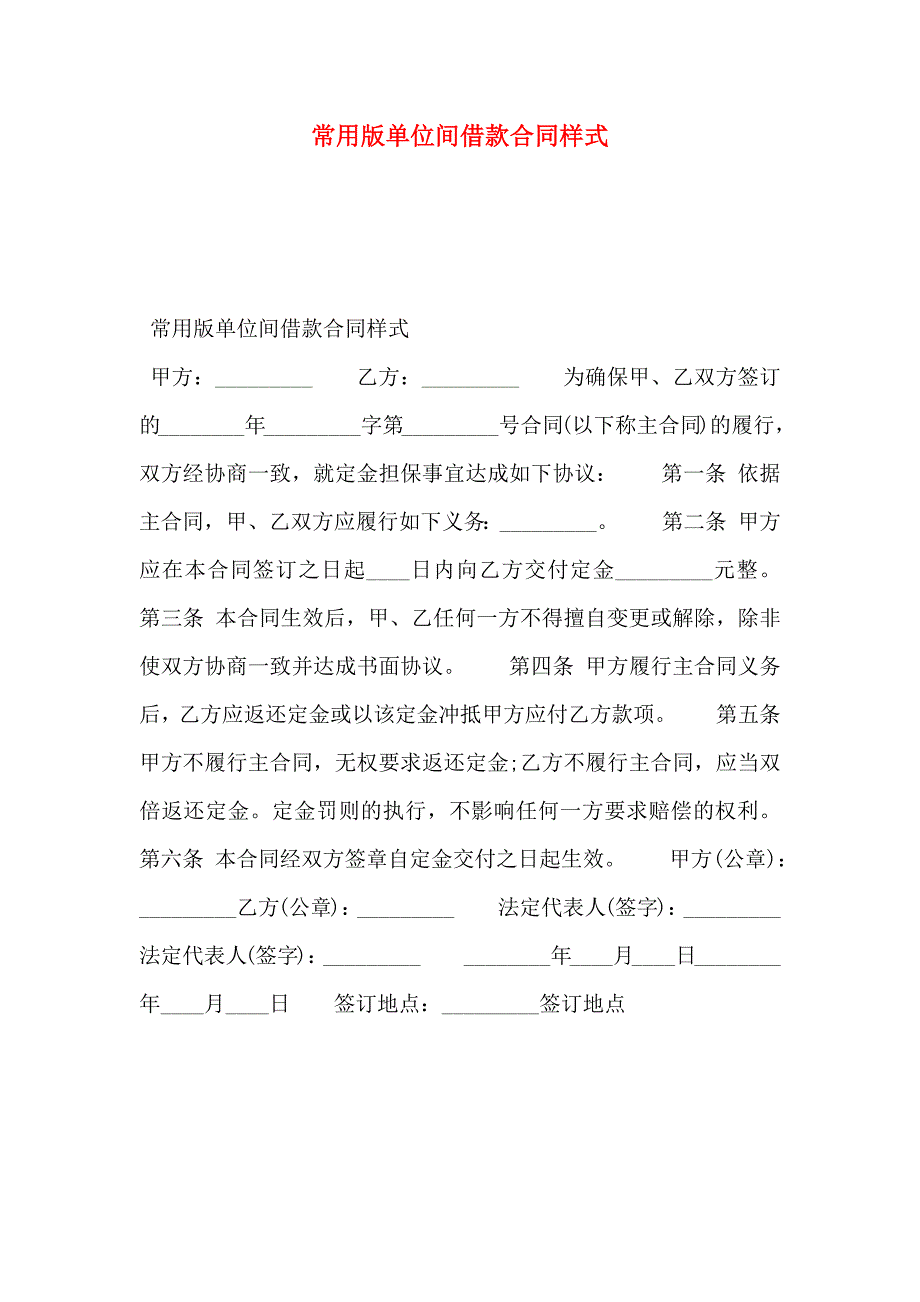 常用版单位间借款合同样式
常用版单位间借款合同样式
甲方：_________　　乙方：_________　　为确保甲、乙双方签订
的________年_________字第_________号合同(以下称主合同)的履行，
双方经协商一致，就定金担保事宜达成如下协议：　　第一条 依据
主合同，甲、乙双方应履行如下义务：_________。　　第二条 甲方
应在本合同签订之日起____日内向乙方交付定金_________元整。
第三条 本合同生效后，甲、乙任何一方不得擅自变更或解除，除非
使双方协商一致并达成书面协议。　　第四条 甲方履行主合同义务
后，乙方应返还定金或以该定金冲抵甲方应付乙方款项。　　第五条
甲方不履行主合同，无权要求返还定金;乙方不履行主合同，应当双
倍返还定金。定金罚则的执行，不影响任何一方要求赔偿的权利。
第六条 本合同经双方签章自定金交付之日起生效。　　甲方(公章)：
_________乙方(公章)：_________　　法定代表人(签字)：_________
法定代表人(签字)：_________　　________年____月____日________
年____月____日　　签订地点：_________签订地点